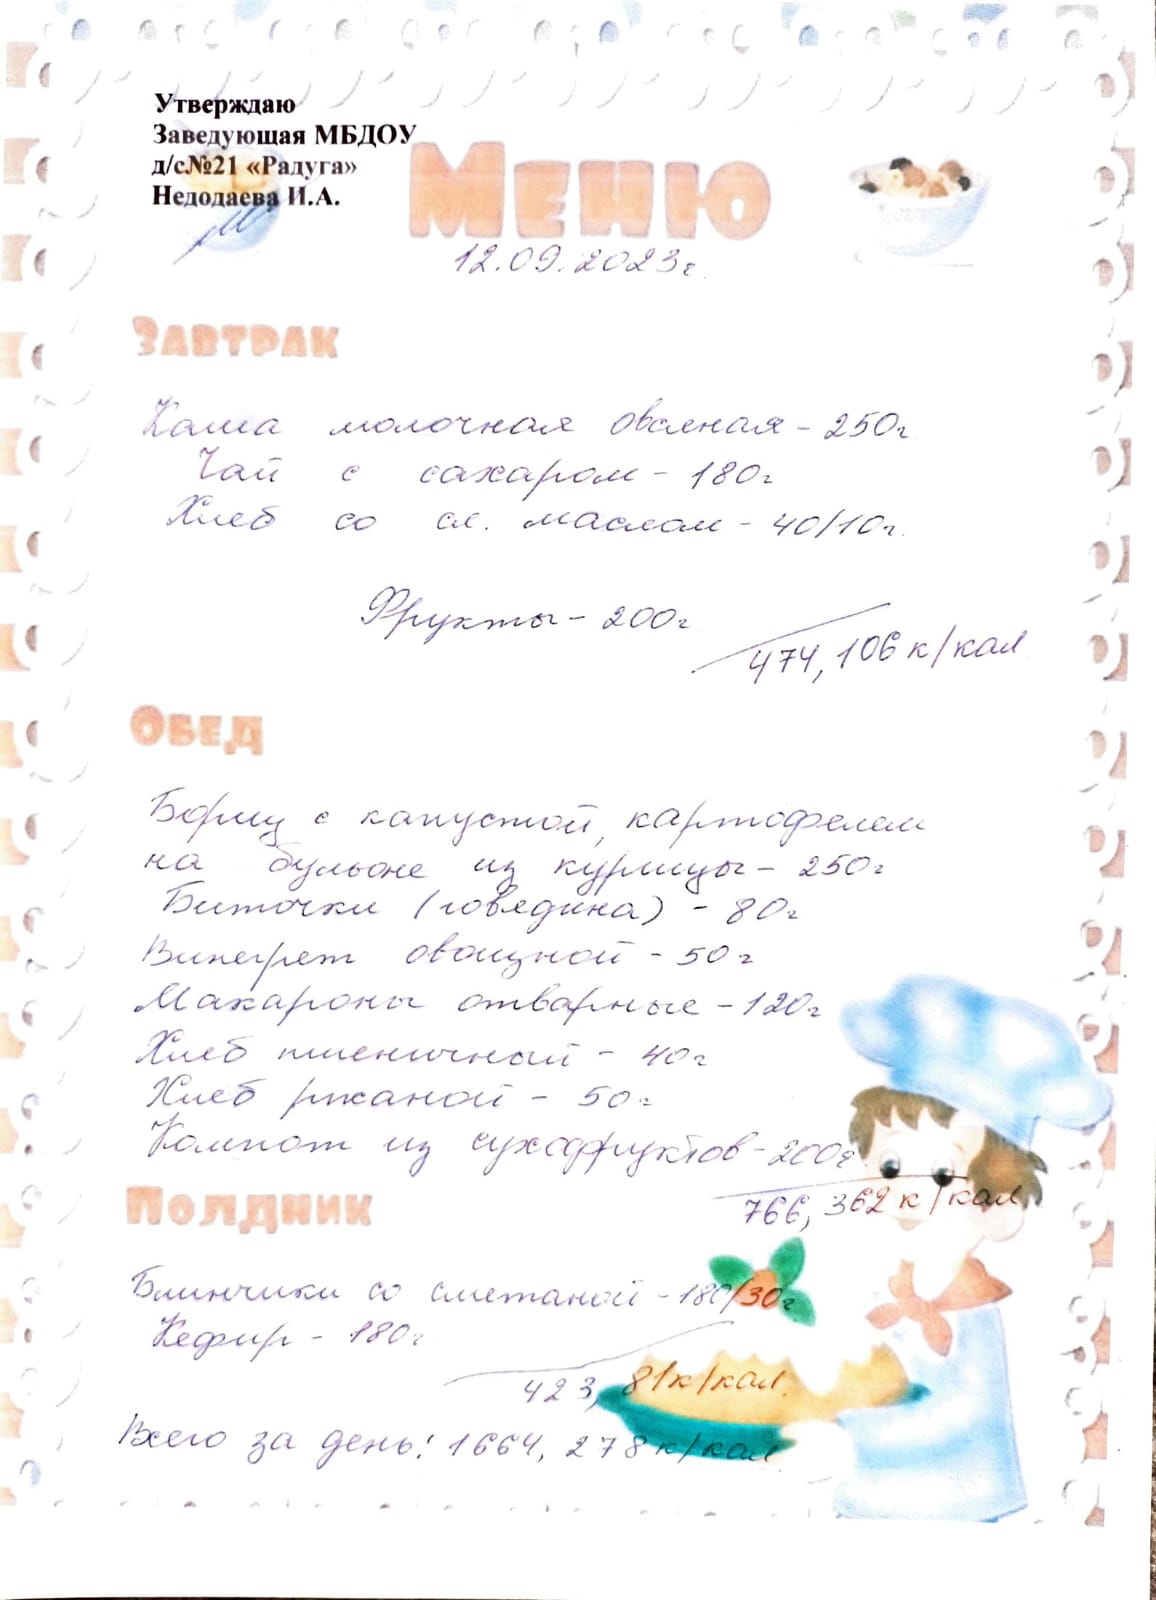 Утверждаю
Заведующая МБДОУ
д/с№21 «Радуга»
Недодаева И.А.
Меню
12.09.2023г.
Завтрак
Каша молочная овсяная - 250г
Чай с сахаром - 180г
Хлеб со сл. маслом - 40/10г.
Фрукты - 200г
474, 106 к/кал
Обед
Борщ с капустой, картофелем
на бульоне из курицы - 250г
Биточки (говядина) - 80г
Винегрет овощной - 50г
Макароны отварные - 120г
Хлеб пшеничный - 40г
Хлеб ржаной - 50г
Компот из сухофруктов - 200г.
766, 362 к/кал
Полдник
Блинчики со сметаной - 180/30г
Кефир - 180г
423, 81 к/кал.
Всего за день: 1664, 278 к/кал